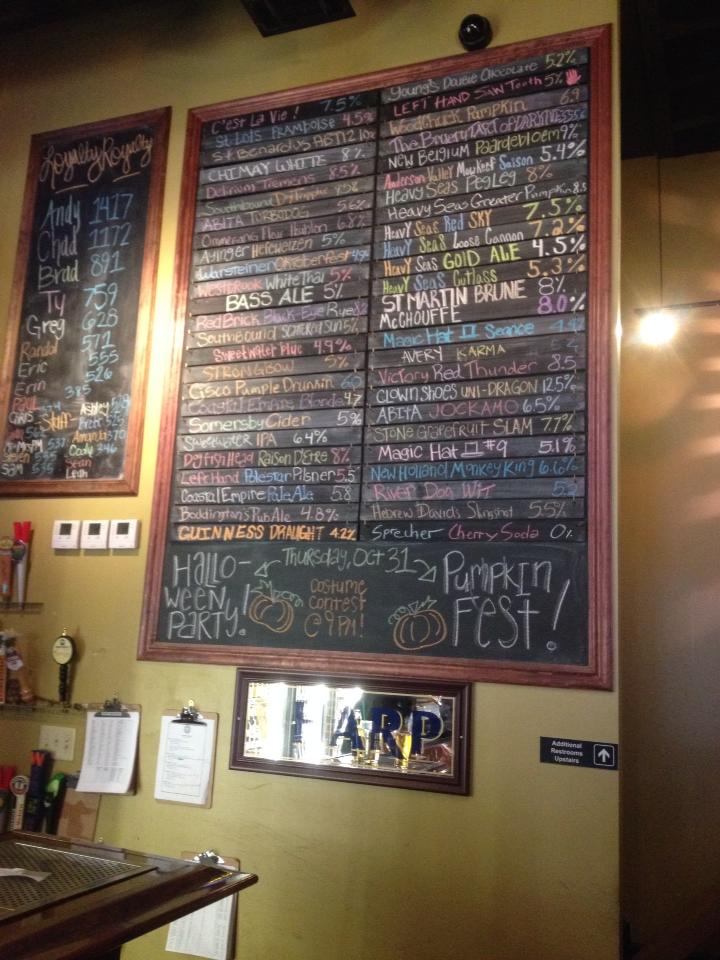 Loyalty Royalty
Andy 1417
Chad 1172
Brad 891
Ty 759
Greg 628
Randal 571
Eric 555
Erin 526
385
Staff
Ashley
Brett 525
Amanda 370
Cody 346
Sean
Leigh
Steven 535
Sam 535
C'est La Vie! 7.5%
St. Lou's Framboise 4.5%
St Benardus ABT12 10%
CHIMAY WHITE 8%
Delirium Tremens 8.5%
Southbound Dry Hopple
ABITA TURBODOG 5.6%
Ommegang Hop Houblon 6.8%
Ayinger Hefeweizen 5%
Warsteiner Oktoberfest 4.9%
Westbrook White Thai 5%
BASS ALE 5%
Red Brick Black-Eye Rye
Southbound Scattered Sun 5%
Sweetwater blue 4.9%
STRONGBOW 5%
Cisco Pumple Drumkin 6.0
Coastal Empire Blonde 4.7
Somersby Cider 5%
Sweetwater IPA 6.4%
Dogfish Head Raison D'Etre 8%
Left Hand Polestar Pilsner 5.5
Coastal Empire Pale Ale 5.8
Boddington's Pub Ale 4.8%
GUINNESS DRAUGHT 4.2%
Young's Double Chocolate 5.2%
LEFT HAND Saw Tooth 5%
Woodchuck Pumpkin 6.9
The Bruery TART OF DARKNESS
NEW BELGIUM Paardebloem 9%
Anderson Valley Mowkeef Saison 5.4%
Heavy Seas PegLeg 8%
Heavy Seas Greater Pumpkin 8.5
Heavy Seas Red SKY 7.5%
Heavy Seas Loose Cannon 7.2%
HEAVY Seas GOLD ALE 4.5%
Heavy Seas Cutlass 5.3%
ST MARTIN BRUNE 8%
McCHOUFFE 8.0%
Magic Hat Seance 4.4%
AVERY KARMA
Victory Red Thunder 8.5
CLOWN SHOES UNI-DRAGON 12.5%
ABITA JOCKAMO 6.5%
STONE GRAPEFRUIT SLAM 7.7%
Magic Hat #9 5.1%
New Holland Monkey King 6.6%
River Dog Wit
Hebrew David's Slingshot 5.5%
Sprecher Cherry Soda 0%
Thursday, Oct 31
HALLO-
WEEN
PARTY!
COSTUME
CONTEST
@ 9PM!
PUMPKIN
FEST!
HARP
Additional
Restrooms
Upstairs